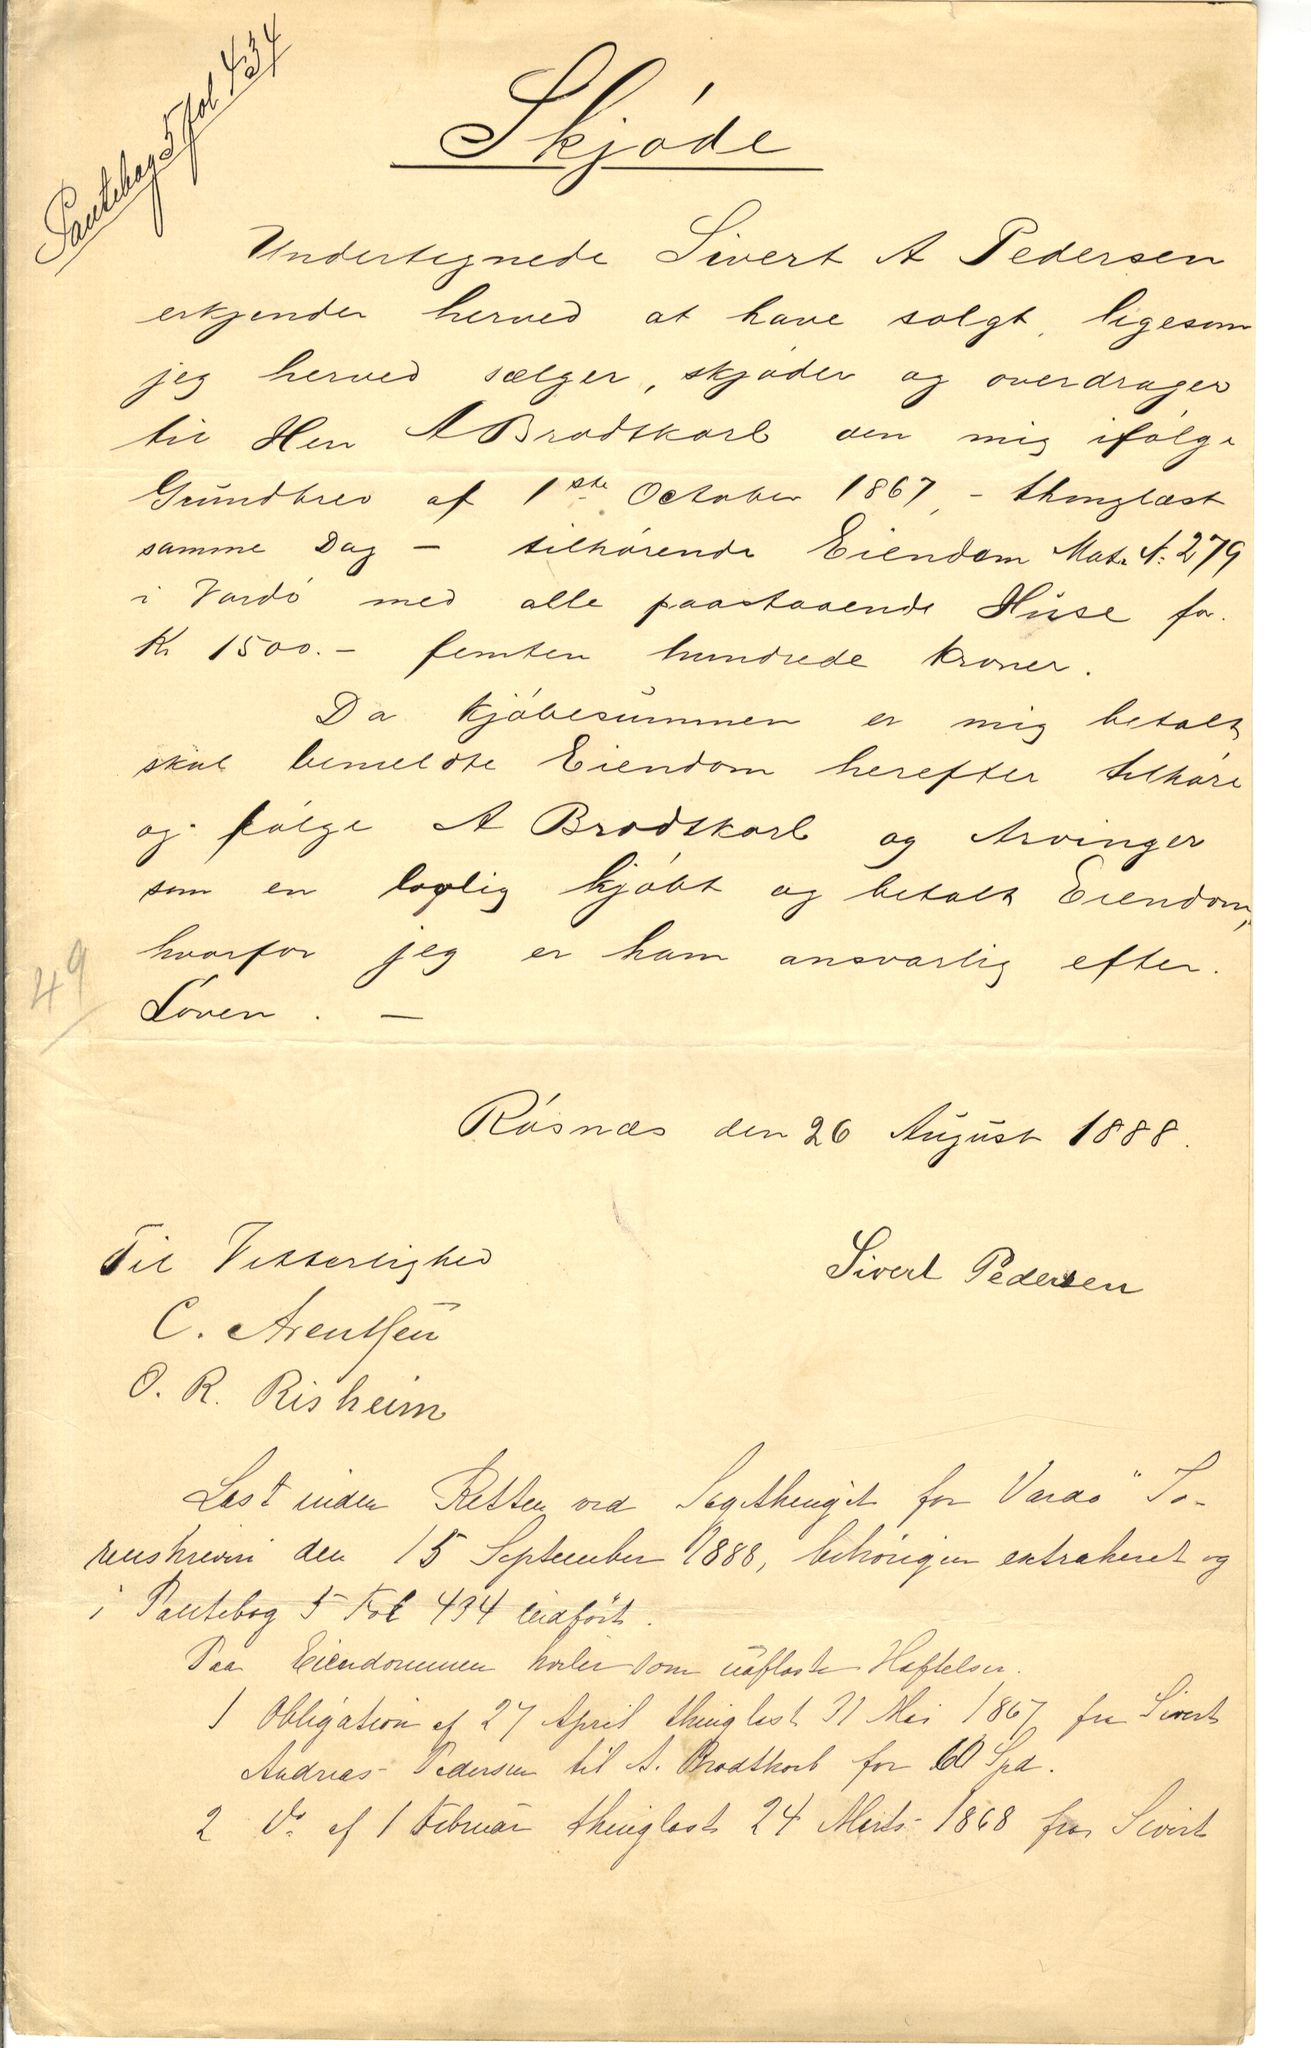 Pantebog 5 fol 434
Skjøde
Undertegnede Sivert A Pedersen
erkjender herved at have solgt, ligesom
jeg herved sælger, skjøder og overdrager
til Herr A Brodtkorb den mig ifølge
Grundbrev af 1ste October 1867, - thinglæst
samme Dag - tilhørende Eiendom Mat. N: 279
i Vardø med alle paastaaende Huse for
Kr 1500.- femten hundrede kroner.
Da kjøbesummen er mig betalt
skal bemeldte Eiendom herefter tilhøre
og følge A Brodtkorb og Arvinger
som en lovlig kjøbt og betalt Eiendom,
hvorfor jeg er ham ansvarlig efter
Loven. -
49
Røsnæs den 26 August 1888.
Til Vitterlighed
Sivert Pedersen
C. Arentsen
O. R. Risheim
Læst inden Retten ved Sagethinget for Vardø So-
renskriveri den 15 September 1888, behørigen extraheret og
i Pantebog 5 Fol 434 indført.
Paa Eiendommen hviler som uafløste Heftelser.
1 Obligation af 27 April thinglæst 31 Mai 1867 fra Sivert
Andreas Pedersen til A. Brodtkorb for 60 Spd.
2 Do af 1 Februar thinglæst 24 Marts 1868 fra Sivert